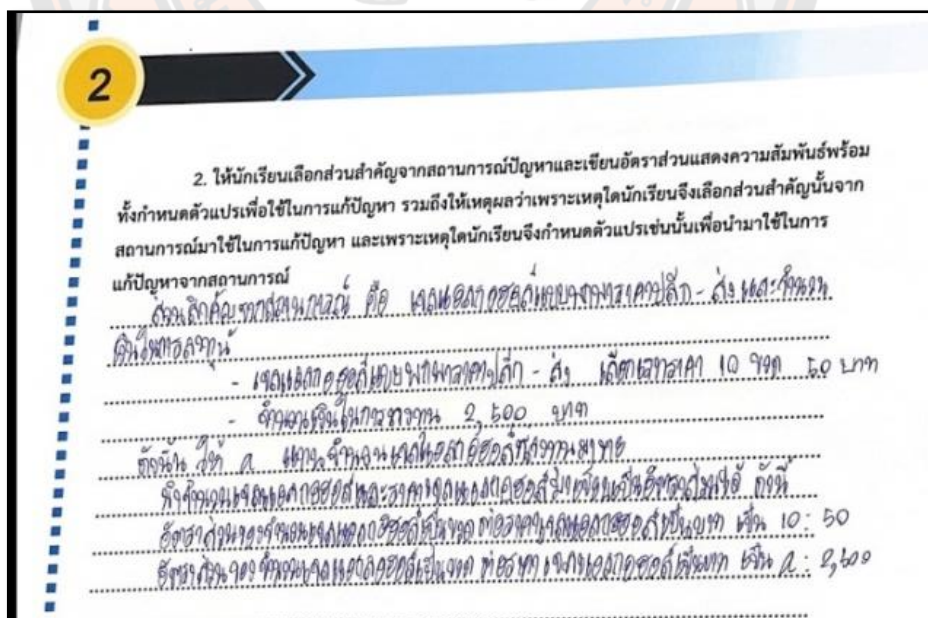 2
2. ให้นักเรียนเลือกส่วนสำคัญจากสถานการณ์ปัญหาและเขียนอัตราส่วนแสดงความสัมพันธ์พร้อม
ทั้งกำหนดตัวแปรเพื่อใช้ในการแก้ปัญหา รวมถึงให้เหตุผลว่าเพราะเหตุใดนักเรียนจึงเลือกส่วนสำคัญนั้นจาก
สถานการณ์มาใช้ในการแก้ปัญหา และเพราะเหตุใดนักเรียนจึงกำหนดตัวแปรเช่นนั้นเพื่อนำมาใช้ในการ
แก้ปัญหาจากสถานการณ์
ส่วนสำคัญจากสถานการณ์ คือ เจลแอลกอฮอล์แบบพกพาราคาปลีก - ส่ง และจำนวน
เงินในการลงทุน
- เจลแอลกอฮอล์แบบพกพาราคาปลีก - ส่ง 10 ขวด 50 บาท
- จำนวนเงินในการลงทุน 2,500 บาท
ดังนั้น ให้ a แทนจำนวนเจลแอลกอฮอล์ที่
นำจำนวนเจลแอลกอฮอล์และราคาเจลแอลกอฮอล์มาเขียนเป็นอัตราส่วนได้ ดังนี้
อัตราส่วนของจำนวนเจลแอลกอฮอล์เป็นขวด ต่อราคาเจลแอลกอฮอล์เป็นบาท เป็น 10 : 50
อัตราส่วนของจำนวนเจลแอลกอฮอล์เป็นขวด ต่อราคาเจลแอลกอฮอล์เป็นบาท เป็น a : 2,500